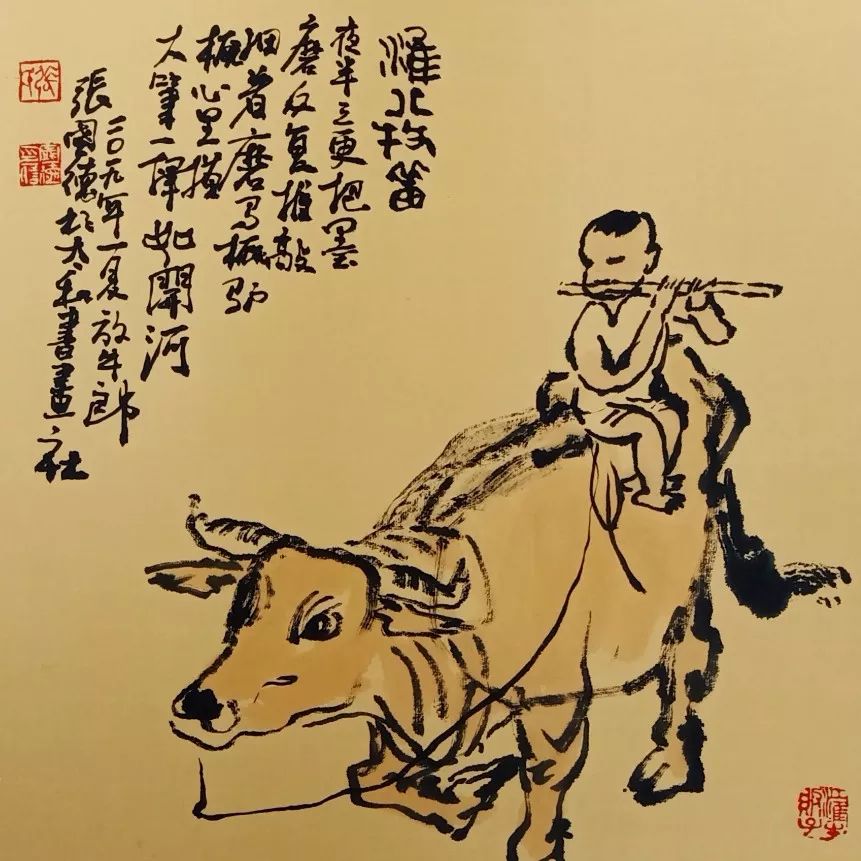 淮北牧笛
夜半三更把墨
磨反复推敲
细着磨马板驴
板心里摸
大筆一揮如開河
二〇一九年夏放牛郎
張國德於太和書畫社